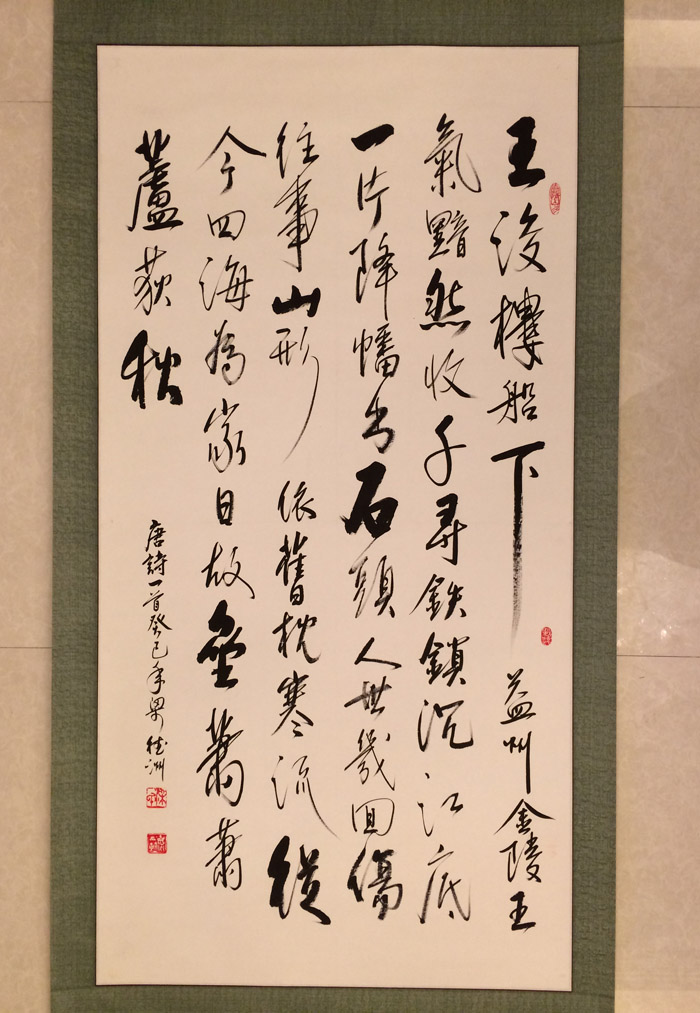 王浚樓船下益州金陵王
氣黯然收千尋鉄鎖沉江底
一片降幡出石頭人世幾回傷
往事山形依舊枕寒流從
今四海為家日故壘蕭蕭
蘆荻秋
唐詩一首癸巳年梁洲